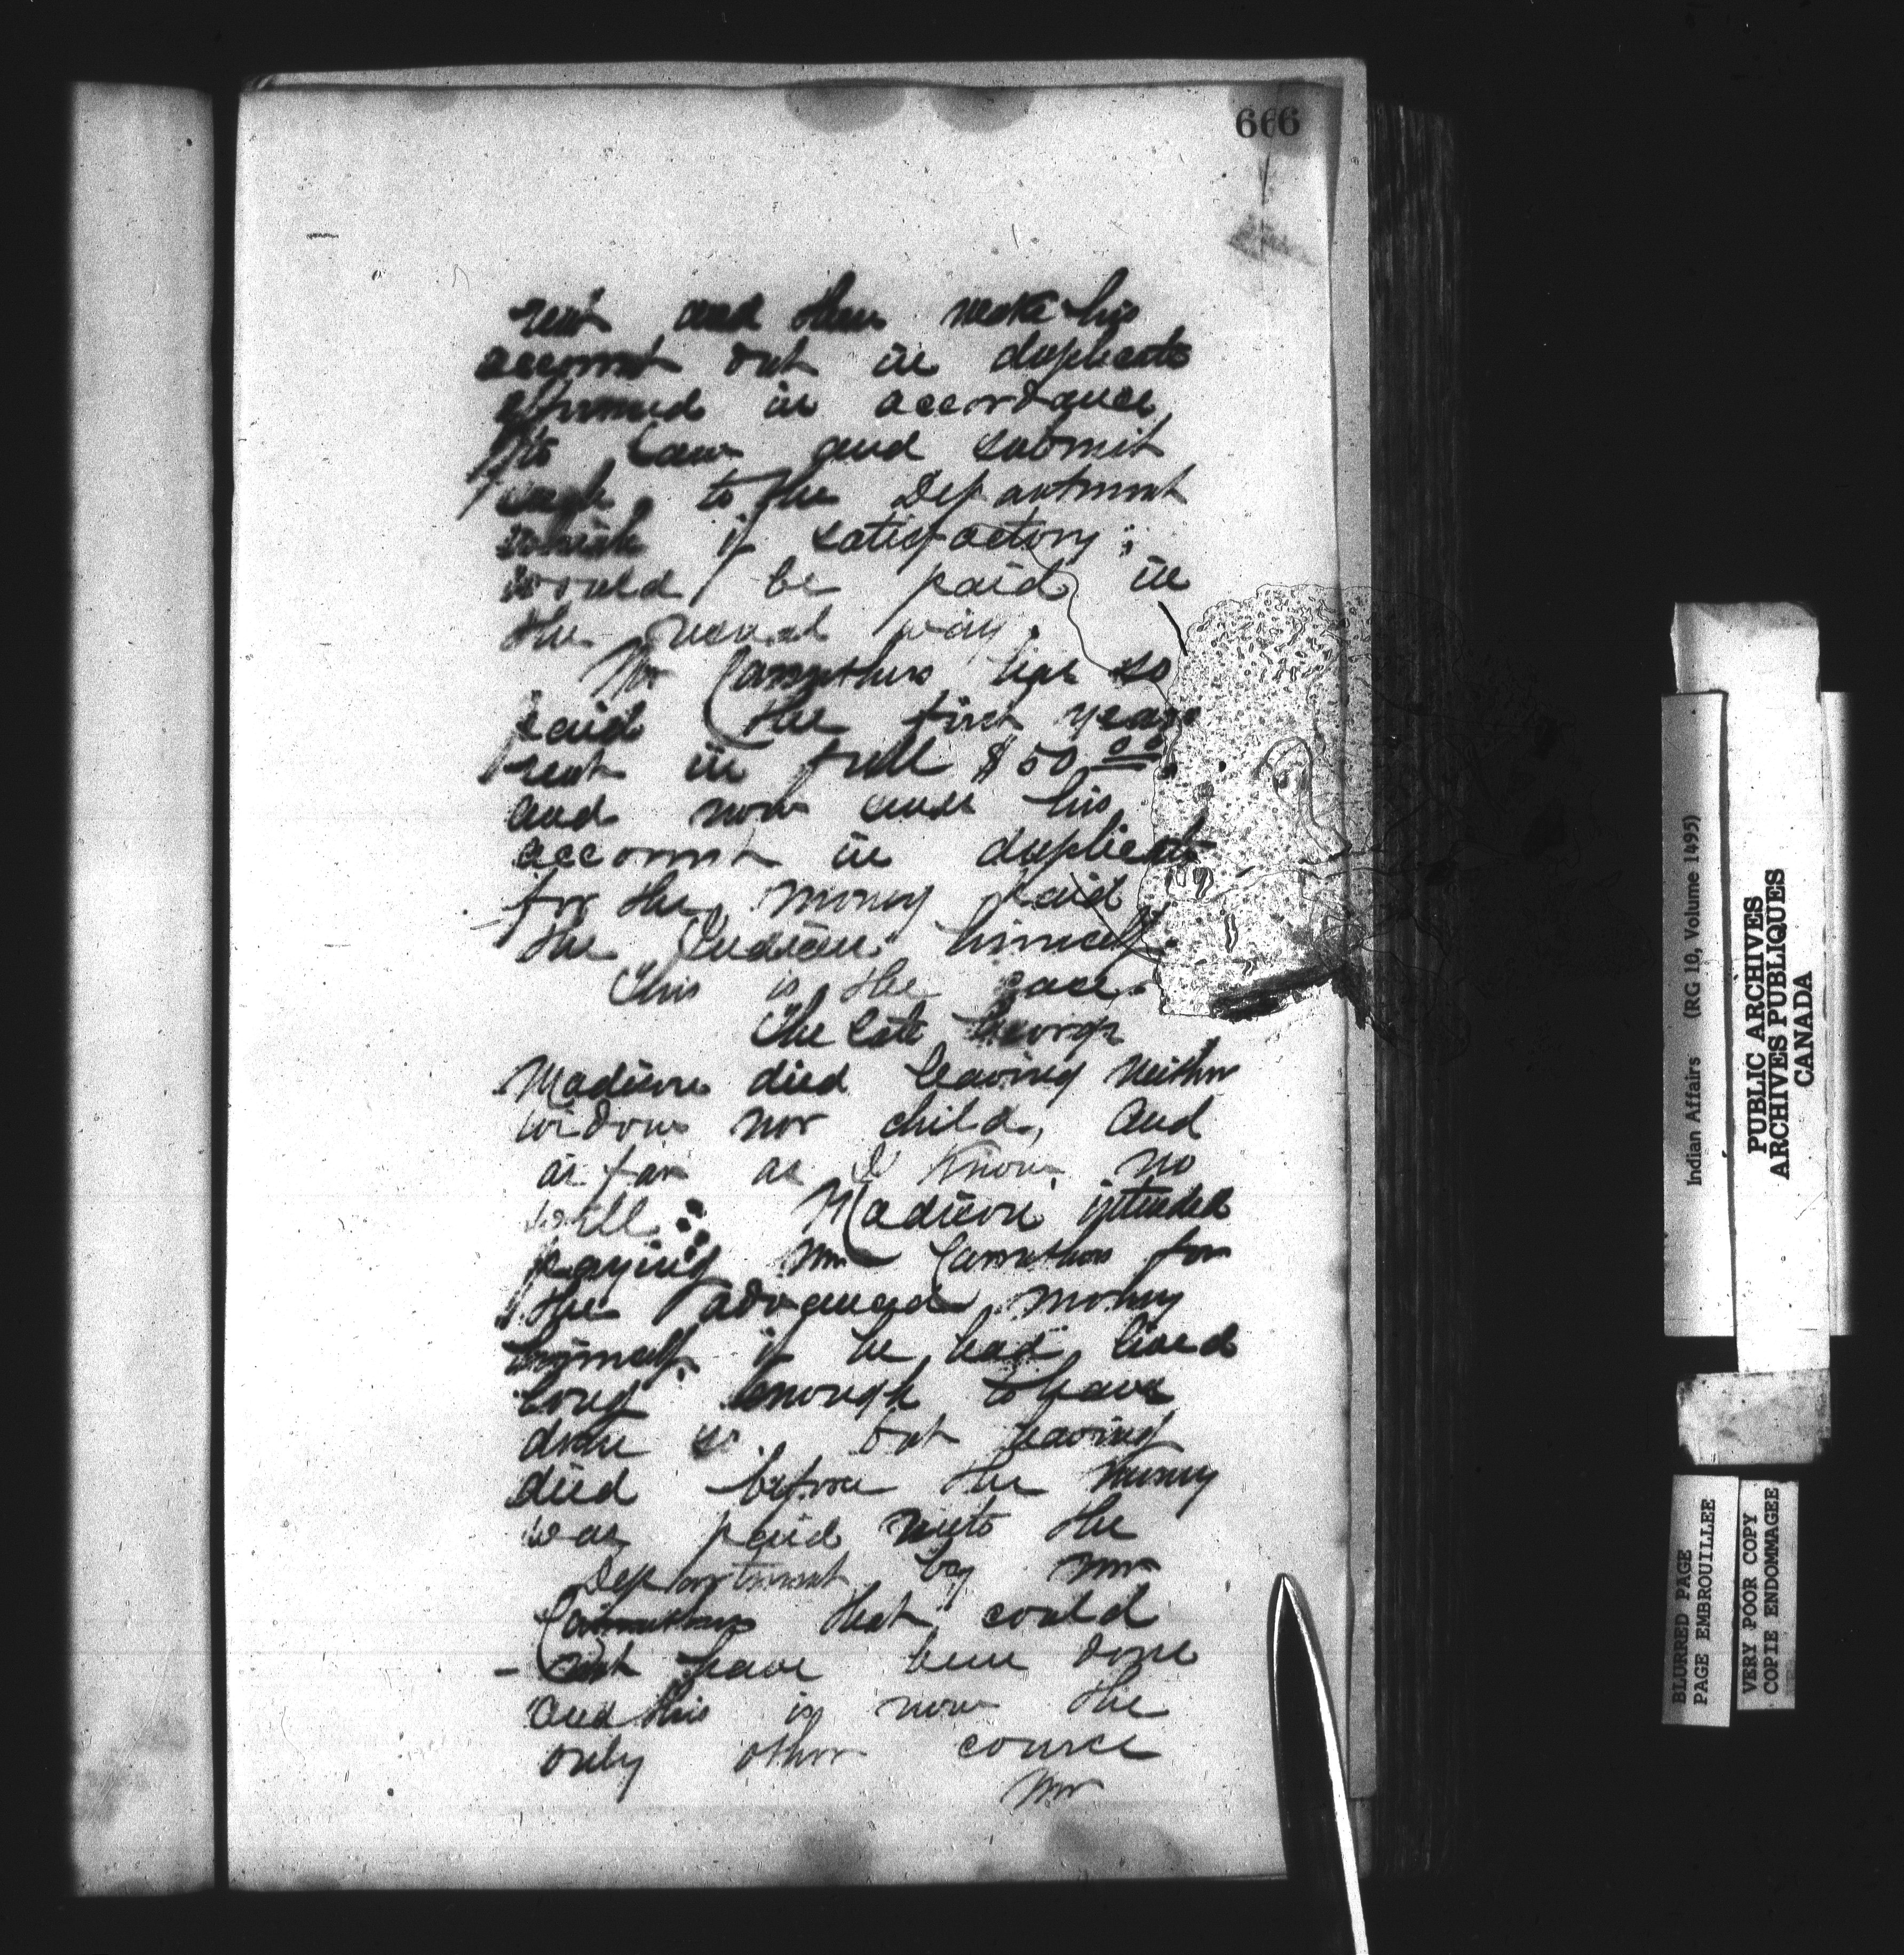 666
rent and then make his
account out in duplicate
affirmed in accordance
to Law and submit
each to the Department
which if satisfactory
would be paid in
the usual way.
Mr Carruthers has so
paid the first years
rent in full $50.00
and now sends his
account in duplicate
for the money paid
the Indian himself.
This is the case.
The late George
Madison died leaving neither
widow nor child, and
as far as I know no
will. Madison intended
paying Mr Carruthers for
the advanced money
himself, if he had lived
long enough to have
done so. but having
died before the money
was paid into the
Department by Mr
Carruthers that could
not have been done
and this is now the
only other course
Mr
Indian Affairs (RG 10, Volume 1495)
PUBLIC ARCHIVES
ARCHIVES PUBLIQUES
CANADA
BLURRED PAGE
PAGE EMBROUILLEE
VERY POOR COPY
COPIE ENDOMMAGEE